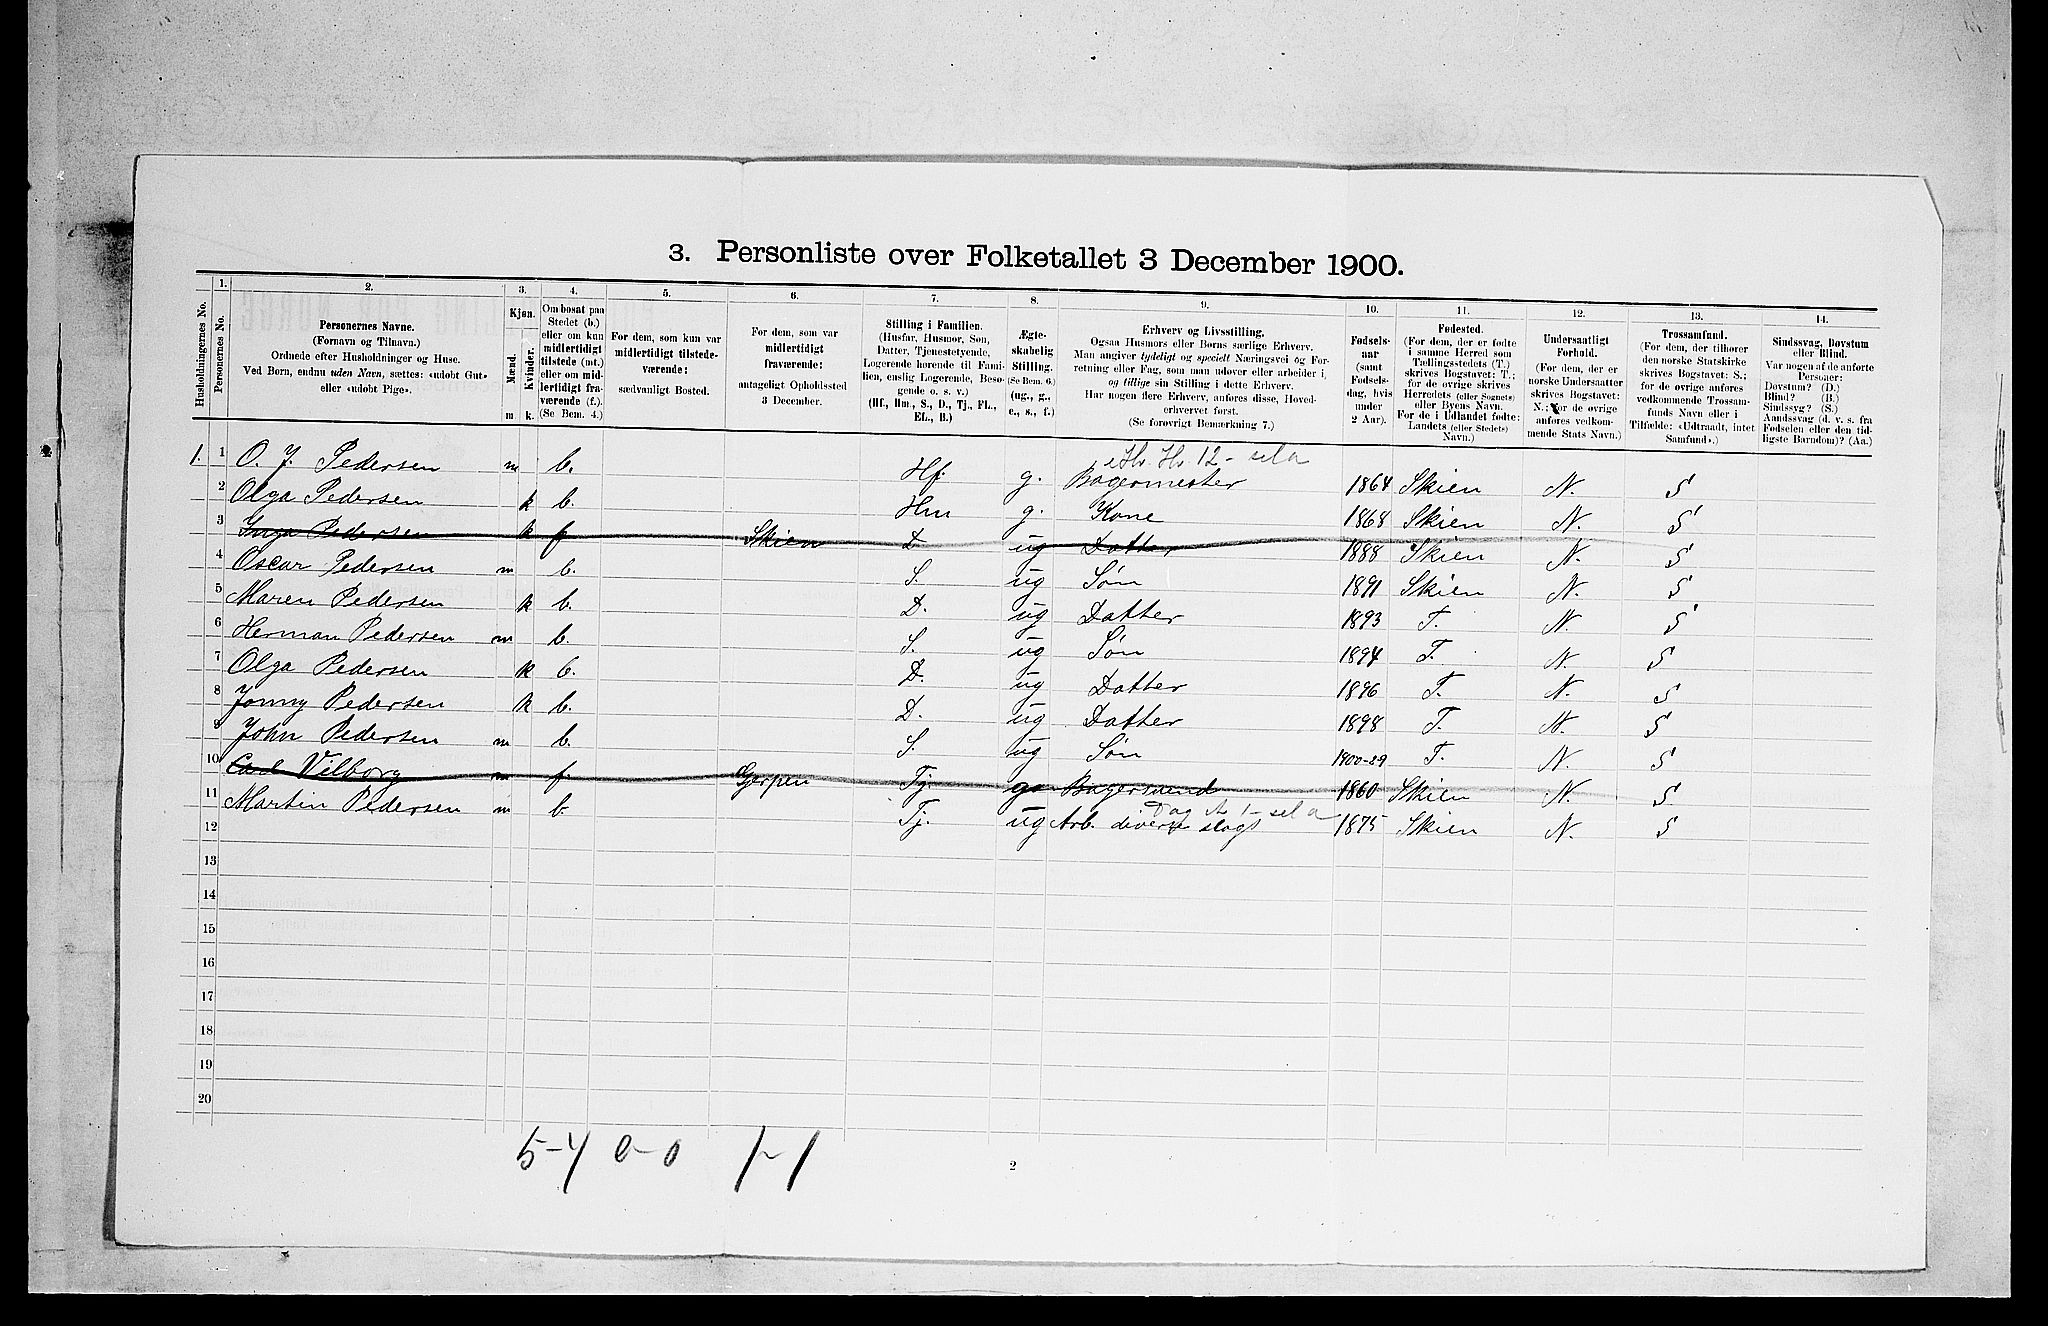 3. Personliste over Folketallet 3 December 1900.
Husholdningernes No.
1.
Personernes No.
2.
Personernes Navne.
(Fornavn og Tilnavn.)
Ordnede efter Husholdninger og Huse.
Ved Børn, endnu uden Navn, sættes: «udøbt Gut»
eller «udøbt Pige».
3.
Kjøn.
Mænd.
Kvinder.
m. k.
4.
Om bosat paa
Stedet (b.)
eller om kun
midlertidigt
tilstede (mt.)
eller om mid-
lertidigt fra-
værende (f.).
(Se Bem. 4.)
5.
For dem, som kun var
midlertidigt tilstede-
værende:
sædvanligt Bosted.
6.
For dem, som var
midlertidigt
fraværende:
antageligt Opholdssted
3 December.
7.
Stilling i Familien.
(Husfar, Husmor, Søn,
Datter, Tjenestetyende,
Logerende hørende til Fami-
lien, enslig Logerende, Besø-
gende o. s. v.)
(Hf., Hm., S., D., Tj., FL.,
EL., B.)
8.
Ægte-
skabelig
Stilling.
(Se Bem. 6.)
(ug., g.,
e., s., f.)
9.
Erhverv og Livsstilling.
Ogsaa Husmors eller Børns særlige Erhverv.
Man angiver tydeligt og specielt Næringsvei og For-
retning eller Fag, som man udøver eller arbeider i,
og tillige sin Stilling i dette Erhverv.
Har nogen flere Erhverv, anføres disse, Hoved-
erhvervet først.
(Se forøvrigt Bemærkning 7.)
10.
Fødsels-
aar
(samt
Fødsels-
dag, hvis
under
2 Aar).
11.
Fødested.
(For dem, der er fødte
i samme Herred som
Tællingsstedets (T.)
skrives Bogstavet: T.;
for de øvrige skrives
Herredets (eller Sognets)
eller Byens Navn.
For de i Udlandet fødte:
Landets (eller Stedets)
Navn.)
12.
Undersaatligt
Forhold.
(For dem, der er
norske Undersaatter
skrives Bogstavet:
N.; for de øvrige
anføres vedkom-
mende Stats Navn.)
13.
Trossamfund.
(For dem, der tilhører
den norske Statskirke
skrives Bogstavet: S.;
for de øvrige anføres
vedkommende Trossam-
funds Navn eller i
Tilfælde: «Udtraadt, intet
Samfund».)
14.
Sindssvag, Døvstum
eller Blind.
Var nogen af de anførte
Personer:
Døvstum? (D.)
Blind? (B.)
Sindssyg? (S.)
Aandssvag (d. v. s. fra
Fødselen eller den tid-
ligste Barndom)? (Aa.)
1. 1 O. J. Pedersen m b. Hf. g. Bagermester 1864 Skien N. S
2 Olga Pedersen k b. Hm g. Kone 1868 Skien N. S
3 Inga Pedersen k f Skien D. ug Datter 1888 Skien N. S
4 Oscar Pedersen m b. S. ug Søn 1891 Skien N. S
5 Maren Pedersen k b. D. ug Datter 1893 T. N. S
6 Herman Pedersen m b. S. ug Søn 1894 T. N. S
7 Olga Pedersen k b. D. ug Datter 1896 T. N. S
8 Jonny Pedersen k b. D. ug Datter 1898 T. N. S
9 John Pedersen m b. S. ug Søn 1900 T. N. S
10 Carl Vilborg m f. Gjerpen Tj. g. Bagersvend 1860 Skien N. S
11 Martin Pedersen m b. Tj. ug Arb. diverse slags 1875 Skien N. S
12
13
14
15
16
17
18
19
20
5-4 0-0 1-1
2